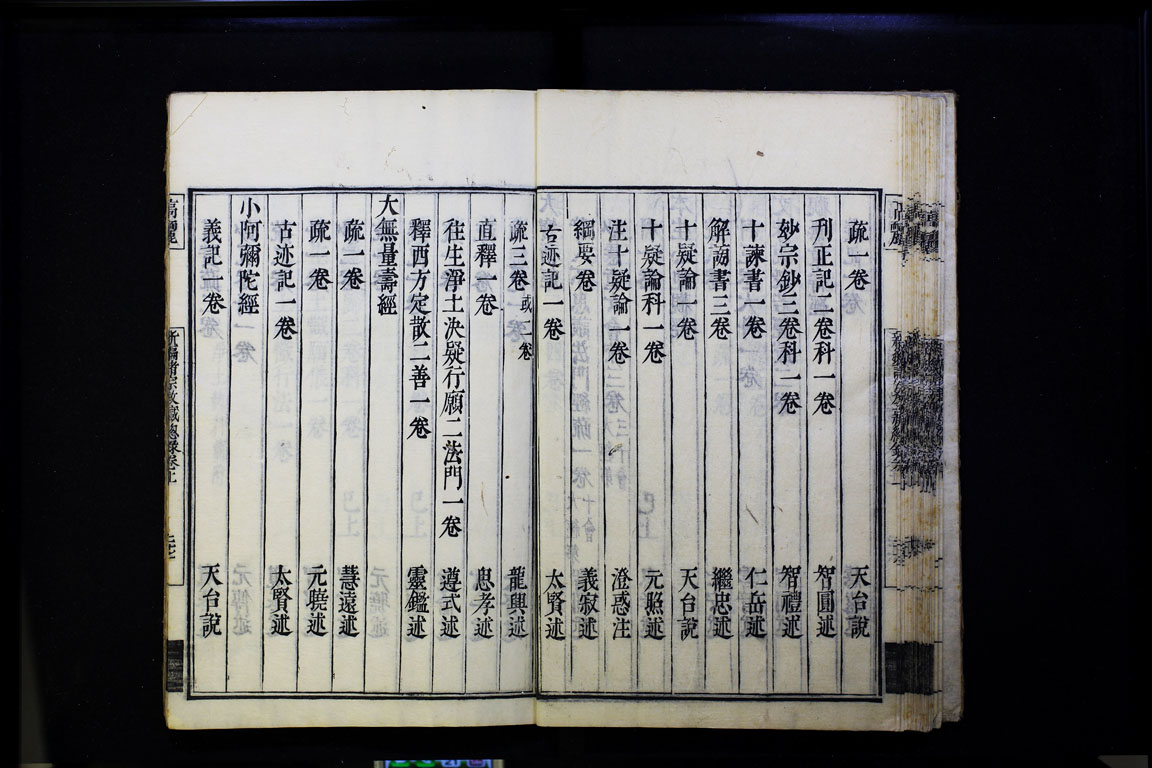 疏一卷 天台說
刋正記二卷科一卷 智圓述
妙宗鈔三卷科一卷 智禮述
十諫書一卷 仁岳述
解謗書三卷 繼忠述
十疑論一卷 天台說
十疑論科一卷 元照述
注十疑論一卷 澄惑注
綱要一卷 義寂述
古迹記一卷 太賢述
疏三卷或一卷 龍興述
直釋一卷 思孝述
往生淨土決疑行願二法門一卷 遵式述
釋西方定散二善一卷 靈鑑述
大無量壽經
疏一卷 慧遠述
疏一卷 元曉述
古迹記一卷 太賢述
小阿彌陀經
義記一卷 天台說
高麗 新編諸宗敎藏總錄卷上